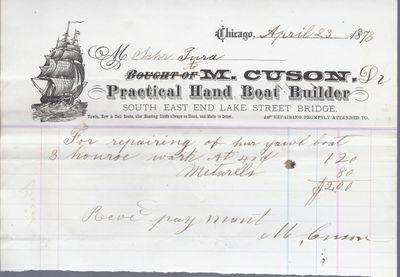 Chicago, April 23 1873
M Schr Tura
to
BOUGHT OF M. CUSON, Dr
Practical Hand Boat Builder
SOUTH EAST END LAKE STREET BRIDGE.
Yawls, Row & Sail Boats, also Hunting Skiffs always on Hand, and Made to Order. REPAIRING PROMPTLY ATTENDED TO.
For repairing of hur yawl boat
3 hours work at 40¢ 1 20
Meterells 80
$2,00
Recvd payment
M, Cuson